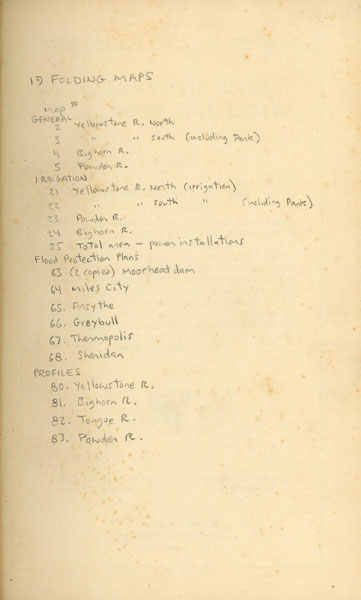 19 FOLDING MAPS
Map #
GENERAL
2 Yellowstone R. North
3 " " South (including Park)
4 Bighorn R.
5 Powder R.
IRRIGATION
21 Yellowstone R. North (irrigation)
22 " " South " (including Park)
23 Powder R.
24 Bighorn R.
25 Total area - power installations
Flood Protection Plans
63 (2 copies) Moorhead dam
64 Miles City
65. Forsythe
66. Greybull
67. Thermopolis
68. Sheridan
PROFILES
80. Yellowstone R.
81. Bighorn R.
82. Tongue R.
83. Powder R.